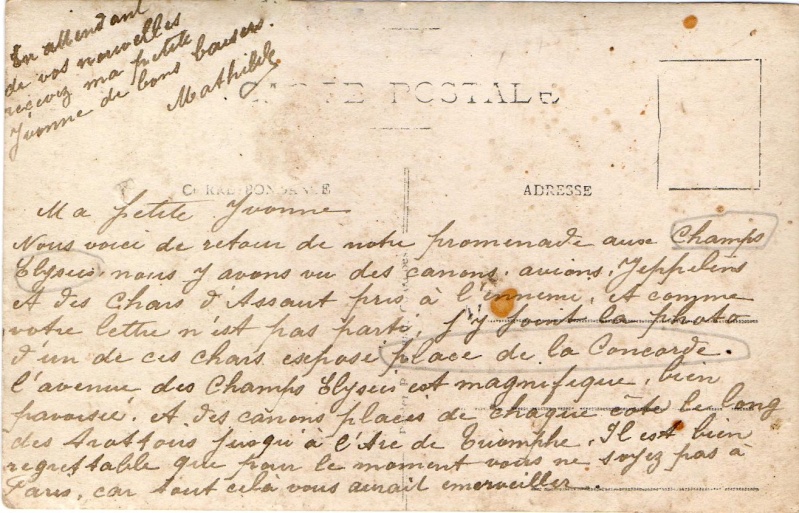 En attendant
de vos nouvelles
recevez ma petite
Yvonne de bons baisers.
Mathilde
CARTE POSTALE
CORRESPONDANCE
ADRESSE
Ma petite Yvonne
Nous voici de retour de notre promenade aux Champs
Elyseis, nous y avons vu des canons, avions, Zeppelins
et des chars d'Assaut pris à l'ennemi, et comme
votre lettre n'est pas parti j'y joint la photo
d'un de ces chars exposé place de la Concorde.
l'avenue des Champs Elyseis est magnifique, bien
pavoisié, et des canons placés de chaque côté le long
des trottoirs jusqu'à l'Arc de Triomphe. Il est bien
regrettable que pour le moment vous ne soyez pas à
Paris, car tout celà vous aurait émerveiller.